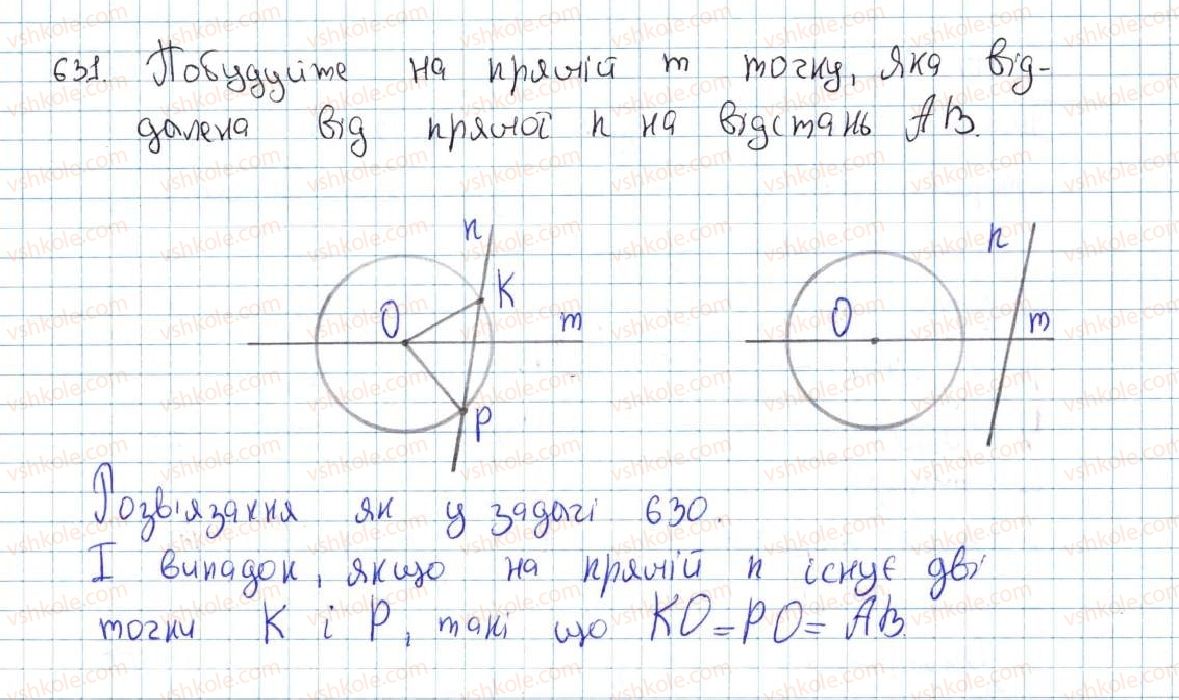 631. Побудуйте на прямій m точку, яка від-
далена від прямої n на відстань AB.
n
K
O
m
P
n
O
m
Розв'язання як у задачі 630.
I випадок, якщо на прямій n існує дві
точки K і P, такі що KO=PO=AB.